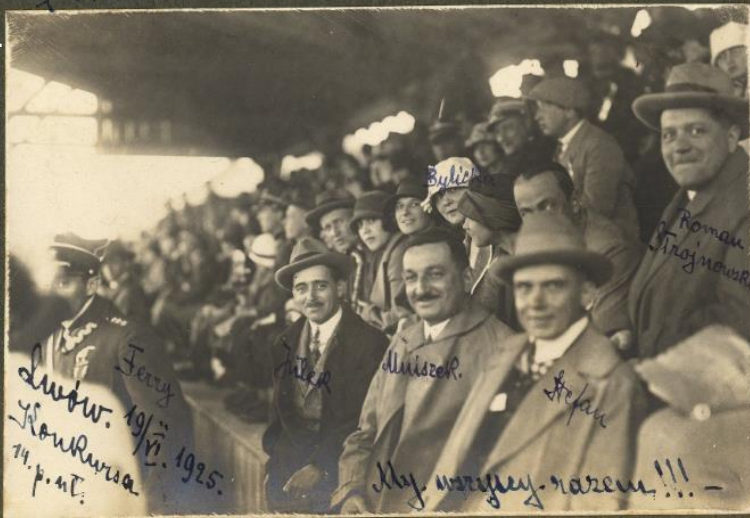 Bylicka
Roman
Trojnowski
Ferry
Julek
Mniszek.
Stefan
Lwów. 19/VI. 1925.
Konkursa
14. p. uł.
My. wszyscy. razem!!! –